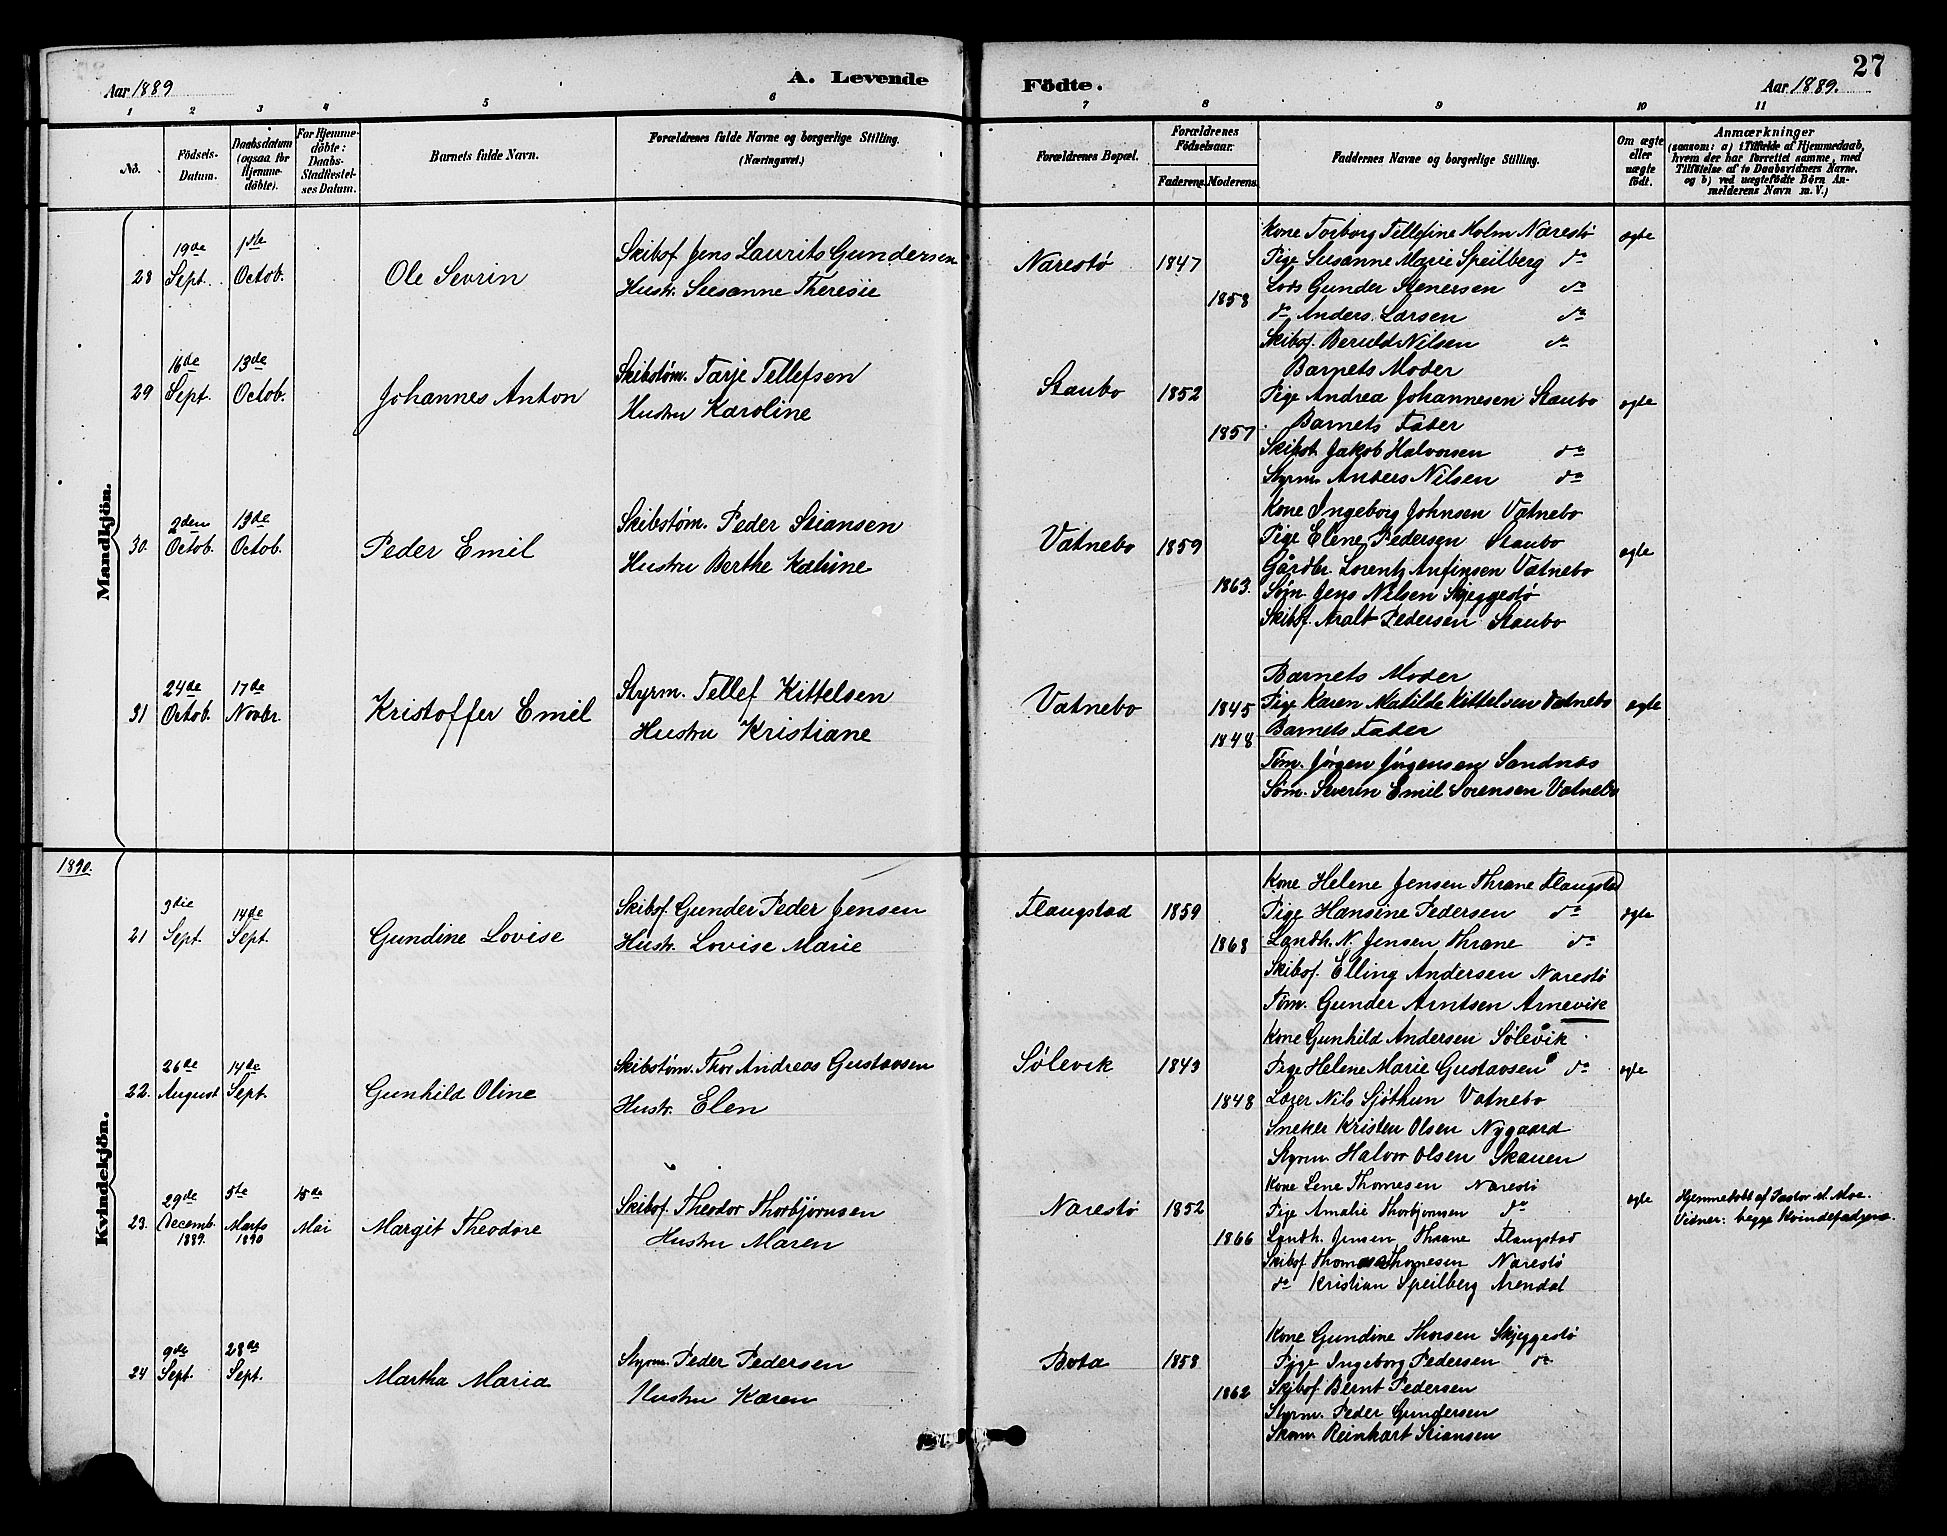 Aar 1889 A. Levende Födte. Aar 1889. 27
1 2 3 4 5 6 7 8 9 10 11
No. Födsels-Datum. Daabsdatum (ogsaa for Hjemmedöbte). For Hjemmedöbte: Daabs-Stadfæstelses Datum. Barnets fulde Navn. Forældrenes fulde Navne og borgerlige Stilling. (Næringsvei.) Forældrenes Bopæl. Forældrenes Födselsaar. Faderens. Moderens. Faddernes Navne og borgerlige Stilling. Om ægte eller uægte födt. Anmærkninger (saasom: a) i Tilfælde af Hjemmedaab, hvem der har forrettet samme, med Tilföielse af to Daabsvidners Navne. og b) ved uægtefödte Börn Anmelderens Navn m. V.)
Mandkjön.
28 19de Sept. 1ste Octob. Ole Sevrin
Skibsf. Jens Laurits Gundersen
Hustr. Susanne Theresie
Narestø 1847 1858
Kone Torborg Tellefine Holm Narestø ægte
Pige Susanne Marie Speilberg do
Lods Gunder Stenersen do
do Anders Larsen do
Skibsf. Beruld Nilsen do
29 16de Sept. 13de Octob. Johannes Anton
Skibstøm. Tarje Tellefsen
Hustru Karoline
Staubo 1852 1857
Barnets Moder
Pige Andrea Johannesen Staubo ægte
Barnets Fader
Skibst. Jakob Halvorsen do
Styrm. Anders Nilsen do
30. 2den Octob. 13de Octob. Peder Emil
Skibstøm. Peder Stiansen
Hustru Berthe Katrine
Vatnebo 1859 1863.
Kone Ingeborg Johnsen Vatnebo
Pige Elene Pedersen Staubo ægte
Gårdbr. Lorentz Anfinsen Vatnebo
Søm. Jens Nilsen Skjeggestø
Skibsf. Aralt Pedersen Staubo
31 24de Octob. 17de Novbr. Kristoffer Emil
Styrm. Tellef Kittelsen
Hustru Kristiane
Vatnebo 1845 1848
Barnets Moder
Pige Karen Matilde Kittelsen Vatnebo ægte
Barnets Fader
Tøm. Jørgen Jørgensen Sandnæs
Søm. Severin Emil Sorensen Vatnebo
1890.
Kvindekjön.
21 3die Sept. 14de Sept. Gundine Lovise
Skibsf. Gunder Peder Jensen
Hustr. Lovise Marie
Flaugstad 1859 1868
Kone Helene Jensen Thrane Flaugstad
Pige Hansine Pedersen do ægte
Landh. N. Jensen Thrane do
Skibsf. Elling Andersen Narestø
Tøm. Gunder Arntsen Arnevik
22. 26de August 14de Sept. Gunhild Oline
Skibstøm. Thor Andreas Gustavsen
Hustr. Elen
Sølevik 1843 1848
Kone Gunhild Andersen Sølevik
Pige Helene Marie Gustavsen do ægte
Lærer Nils Sjøthun Vatnebo
Sneker Kristen Olsen Nygaard
Styrm. Halvor Olsen Skauen
23. 29de Decemb. 1889. 5te Marts 1890 15de Mai Margit Theodore
Skibsf. Theodor Thorbjørnsen
Hustru Maren
Narestø 1852 1866
Kone Lene Thomesen Narestø
Pige Amalie Thorbjørnsen do ægte
Landh. Jensen Thrane Flaugstad
Skibsf. Thomas Thomesen Narestø
do Kristian Speilberg Arendal
Hjemmedøbt af Pastor M. Moe.
Vidner: begge Kvindefadgene.
24 9de Sept. 28de Sept. Martha Maria
Styrm. Peder Pedersen
Hustru Karen
Bota 1858 1862
Kone Gundine Thorsen Skjeggestø
Pige Ingeborg Pedersen do
Skibsf. Bernt Pedersen
Styrm. Peder Gundersen
Skom. Reinhart Stiansen